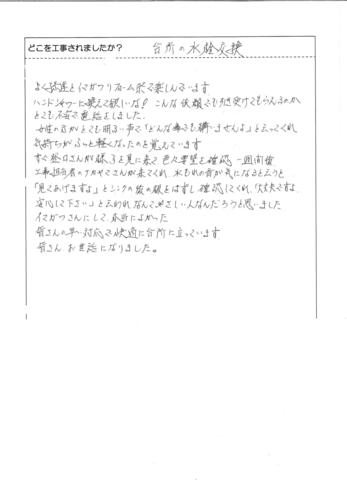 どこを工事されましたか? 台所の水栓交換
よく友達とイマガワリフォーム
ハンドシャワーに換えて欲しいな! こんな依頼でも引き受けてもらえるのか
とても不安で電話をしました。
女性の方がとても明るい声で「どんな事でも構いませんよ」と云ってくれ
気持ちがふっと軽くなったのを覚えています
すぐ 様子を見に来て、色々要望を確認 一週間後
工事担当者のナカヤマさんが来てくれ、水もれの音が気になると云うと
「見てあげますよ」とシンクの の板をはずし確認してくれ、「大丈夫ですよ
安心して下さい」と云われなんてやさしい人なんだろうと思いました
イマガワさんにして、本当によかった
皆さんの早い対応で快適に台所に立っています
皆さん お世話になりました。